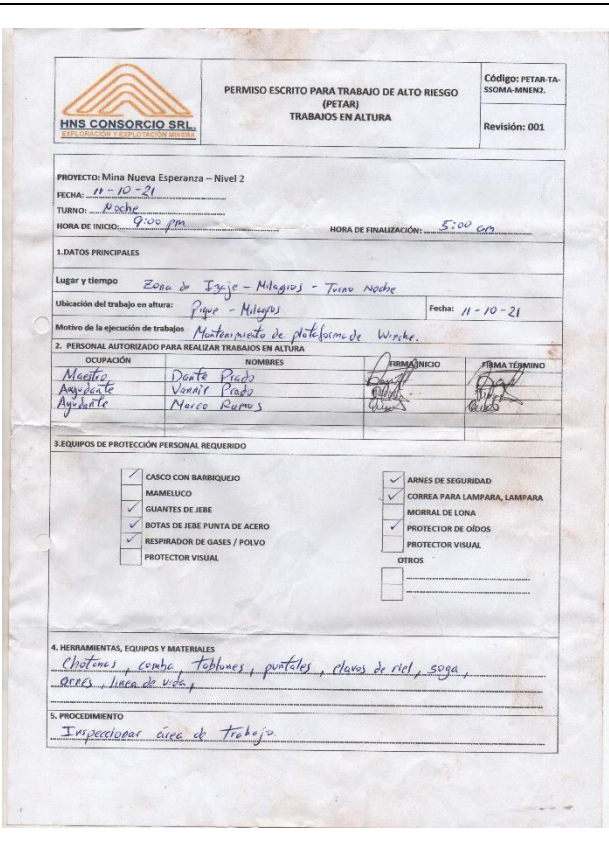 HNS CONSORCIO SRL.
EXPLORACIÓN Y EXPLOTACIÓN MINERA
PERMISO ESCRITO PARA TRABAJO DE ALTO RIESGO
(PETAR)
TRABAJOS EN ALTURA
Código: PETAR-TA-
SSOMA-MNEN2.
Revisión: 001
PROYECTO: Mina Nueva Esperanza – Nivel 2
FECHA: 11-10-21
TURNO: Noche
HORA DE INICIO: 9:00 pm HORA DE FINALIZACIÓN: 5:00 am
1.DATOS PRINCIPALES
Lugar y tiempo Zona de Izaje - Milagros - Turno Noche
Ubicación del trabajo en altura: Pique - Milagros Fecha: 11-10-21
Motivo de la ejecución de trabajos Mantenimiento de plataforma de Winche.
2. PERSONAL AUTORIZADO PARA REALIZAR TRABAJOS EN ALTURA
OCUPACIÓN NOMBRES FIRMA INICIO FIRMA TÉRMINO
Maestro Dante Prado
Ayudante Vannir Prado
Ayudante Marco Ramos
3.EQUIPOS DE PROTECCIÓN PERSONAL REQUERIDO
✓ CASCO CON BARBIQUEJO
MAMELUCO
✓ GUANTES DE JEBE
✓ BOTAS DE JEBE PUNTA DE ACERO
✓ RESPIRADOR DE GASES / POLVO
PROTECTOR VISUAL
✓ ARNES DE SEGURIDAD
✓ CORREA PARA LAMPARA, LAMPARA
MORRAL DE LONA
✓ PROTECTOR DE OÍDOS
PROTECTOR VISUAL
OTROS
4. HERRAMIENTAS, EQUIPOS Y MATERIALES
comba, tablones, puntales, clavos de riel, soga,
arnes, linea de vida,
5. PROCEDIMIENTO
Inspeccionar área de trabajo.